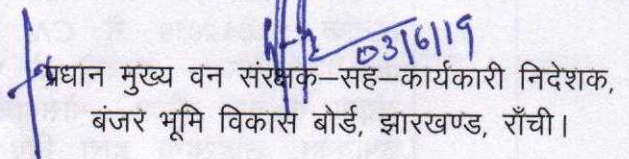 03/6/19
प्रधान मुख्य वन संरक्षक–सह–कार्यकारी निदेशक,
बंजर भूमि विकास बोर्ड, झारखण्ड, राँची।